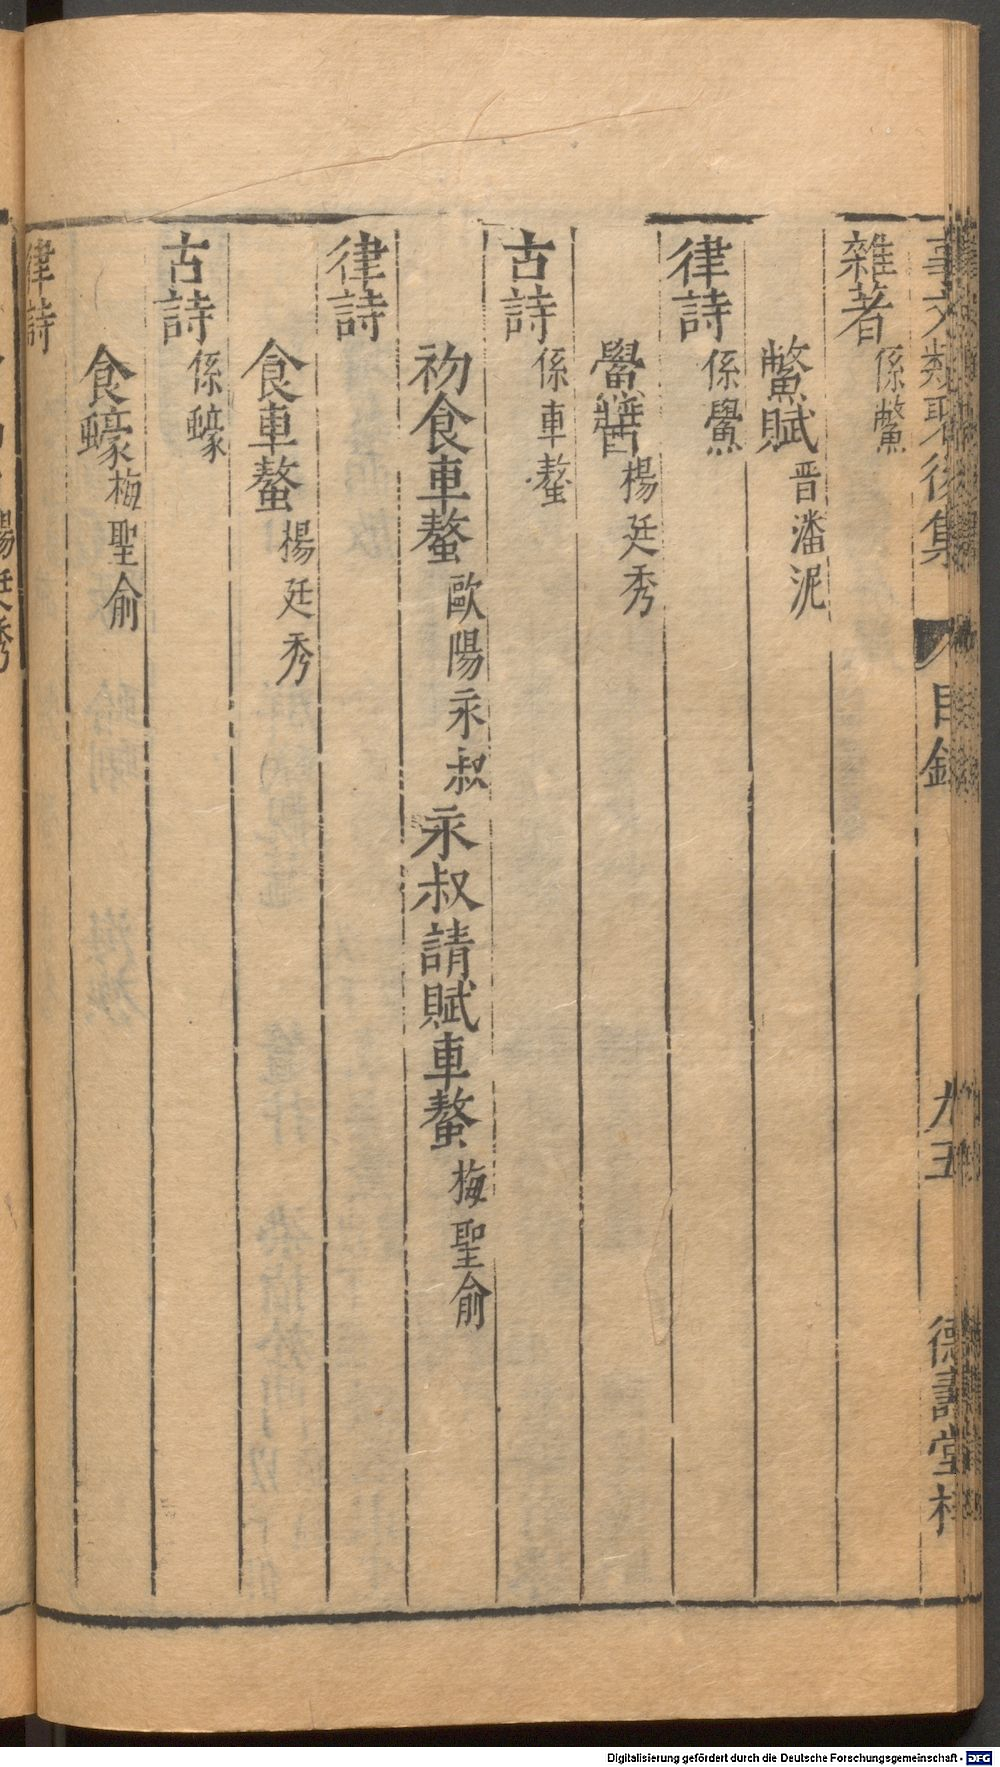 事文類聚後集 目錄 九五 德壽堂梓
雜著係鱉
鱉賦晋潘泥
律詩係鱟
鱟醬楊廷秀
古詩係車螯
初食車螯歐陽永叔永叔請賦車螯梅聖俞
律詩
食車螯楊廷秀
古詩係蠔
食蠔梅聖俞
律詩
楊廷秀
Digitalisierung gefördert durch die Deutsche Forschungsgemeinschaft - DFG